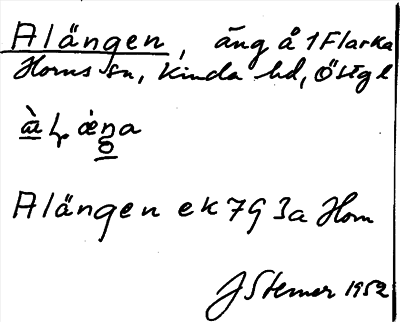 Alängen, äng å 1 Flarka
Horns sn, Kinda hd, Östgl
Alängen ek 7G 3a Horn
J Sterner 1952